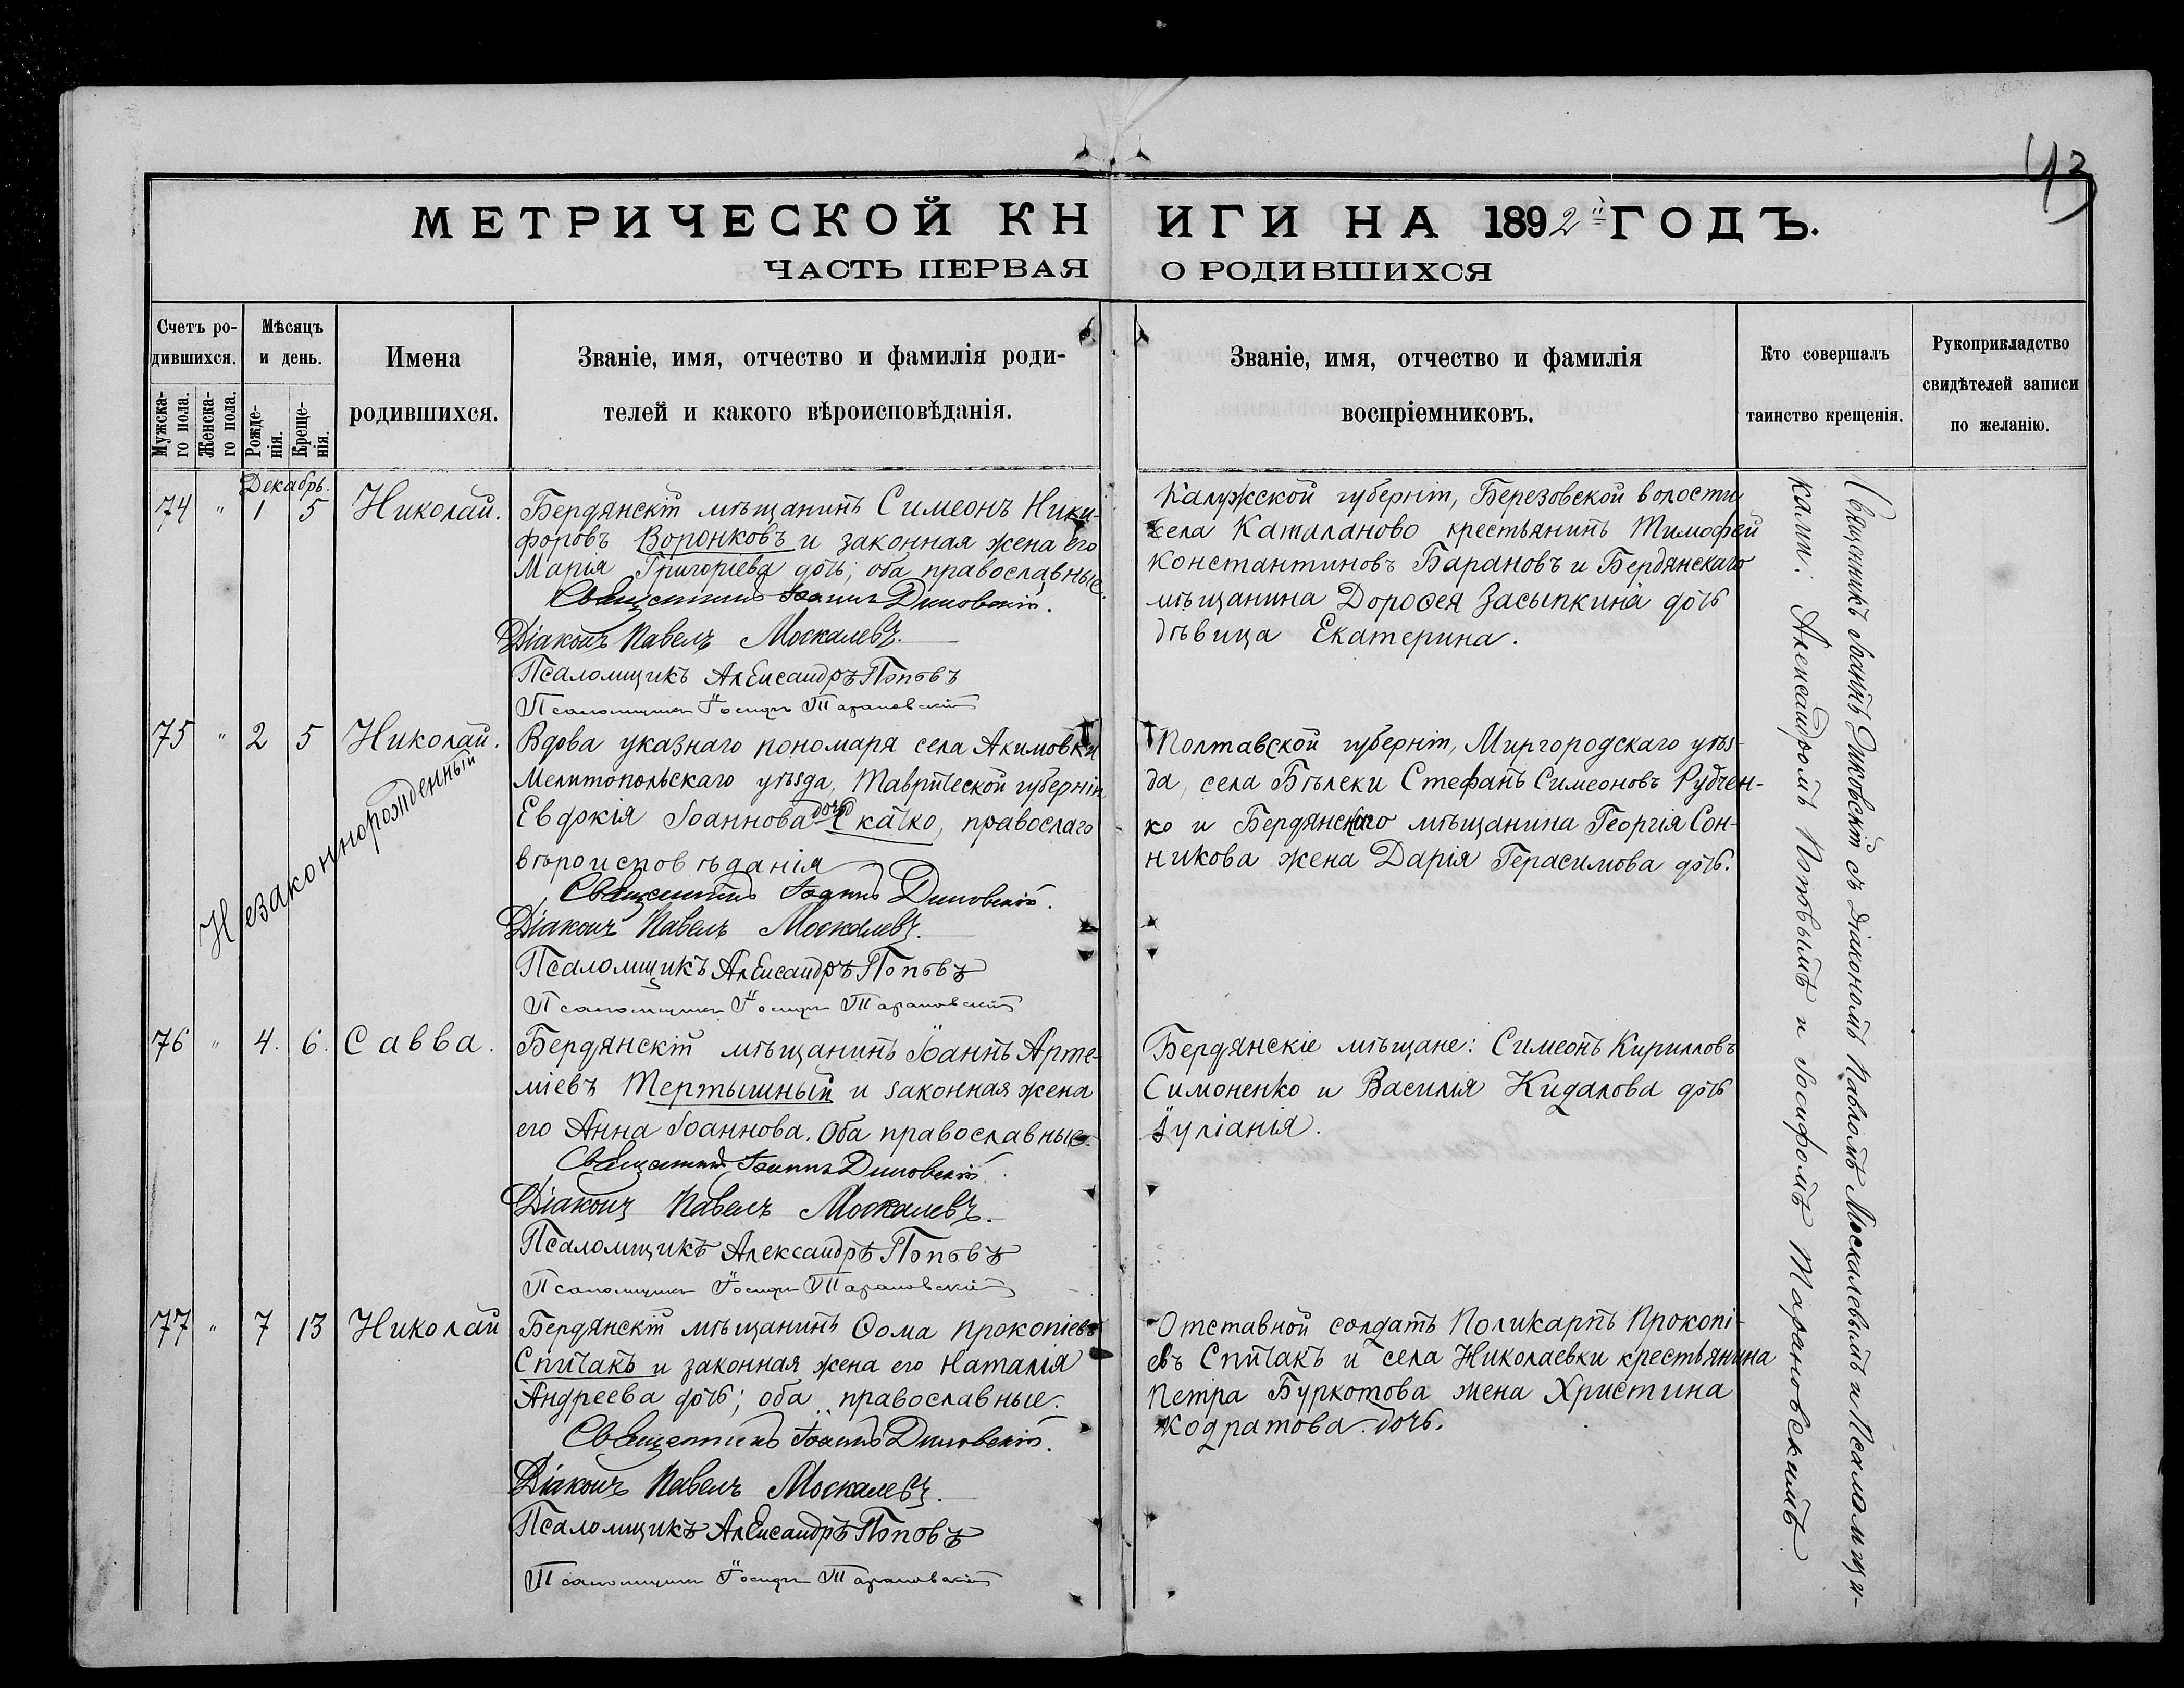 43
МЕТРИЧЕСКОЙ КНИГИ НА 1892й ГОДЪ.
ЧАСТЬ ПЕРВАЯ О РОДИВШИХСЯ
Счетъ ро-
дившихся.
Мужска-
го пола.
Женска-
го пола.
Мѣсяцъ
и день.
Рожде-
нія.
Креще-
нія.
Имена
родившихся.
Званіе, имя, отчество и фамилія роди-
телей и какого вѣроисповѣданія.
Званіе, имя, отчество и фамилія
воспріемниковъ.
Кто совершалъ
таинство крещенія.
Рукоприкладство
свидѣтелей записи
по желанію.
Декабрь.
74 " 1 5 Николай.
Бердянскій мѣщанинъ Симеонъ Ники-
форовъ Воронковъ и законная жена его
Марія Григоріева дочь; оба православные.
Священникъ Іоаннъ Диковскій.
Діаконъ Павелъ Москалевъ.
Псаломщикъ Александръ Поповъ
Псаломщикъ Іосифъ Тарановскій
Калужской губерніи, Березовской волости
села Каталаново крестьянинъ Тимофей
Константиновъ Барановъ и Бердянскаго
мѣщанина Дороѳея Засыпкина дочь
дѣвица Екатерина.
75 " 2 5 Николай.
Незаконнорожденный
Вдова указнаго пономаря села Акимовки
Мелитопольскаго уѣзда, Таврической губерніи
Евдокія Іоаннова дочь Скачко, православаго
вѣроисповѣданія
Священникъ Іоаннъ Диковскій.
Діаконъ Павелъ Москалевъ.
Псаломщикъ Александръ Поповъ
Псаломщикъ Іосифъ Тарановскій
Полтавской губерніи, Миргородскаго уѣз-
да, села Бѣлеки Стефанъ Симеоновъ Рудчен-
ко и Бердянскаго мѣщанина Георгія Сон-
никова жена Дарія Герасимова дочь.
76 " 4. 6. Савва.
Бердянскій мѣщанинъ Іоаннъ Арте-
міевъ Тертышный и законная жена
его Анна Іоаннова. Оба православные.
Священникъ Іоаннъ Диковскій.
Діаконъ Павелъ Москалевъ.
Псаломщикъ Александръ Поповъ
Псаломщикъ Іосифъ Тарановскій
Бердянскіе мѣщане: Симеонъ Кирилловъ
Симоненко и Василія Кидалова дочь
Іуліанія.
77 " 7 13 Николай
Бердянскій мѣщанинъ Ѳома Прокопіевъ
Спичакъ и законная жена его Наталія
Андреева дочь; оба православные.
Священникъ Іоаннъ Диковскій.
Діаконъ Павелъ Москалевъ.
Псаломщикъ Александръ Поповъ
Псаломщикъ Іосифъ Тарановскій
Отставной солдатъ Поликарпъ Прокопі-
евъ Спичакъ и села Николаевки крестьянина
Петра Буркотова жена Христина
Кодратова дочь.
Священникъ Іоаннъ Диковскій съ Діакономъ Павломъ Москалевымъ и Псаломщи-
ками: Александромъ Поповымъ и Іосифомъ Тарановскимъ.